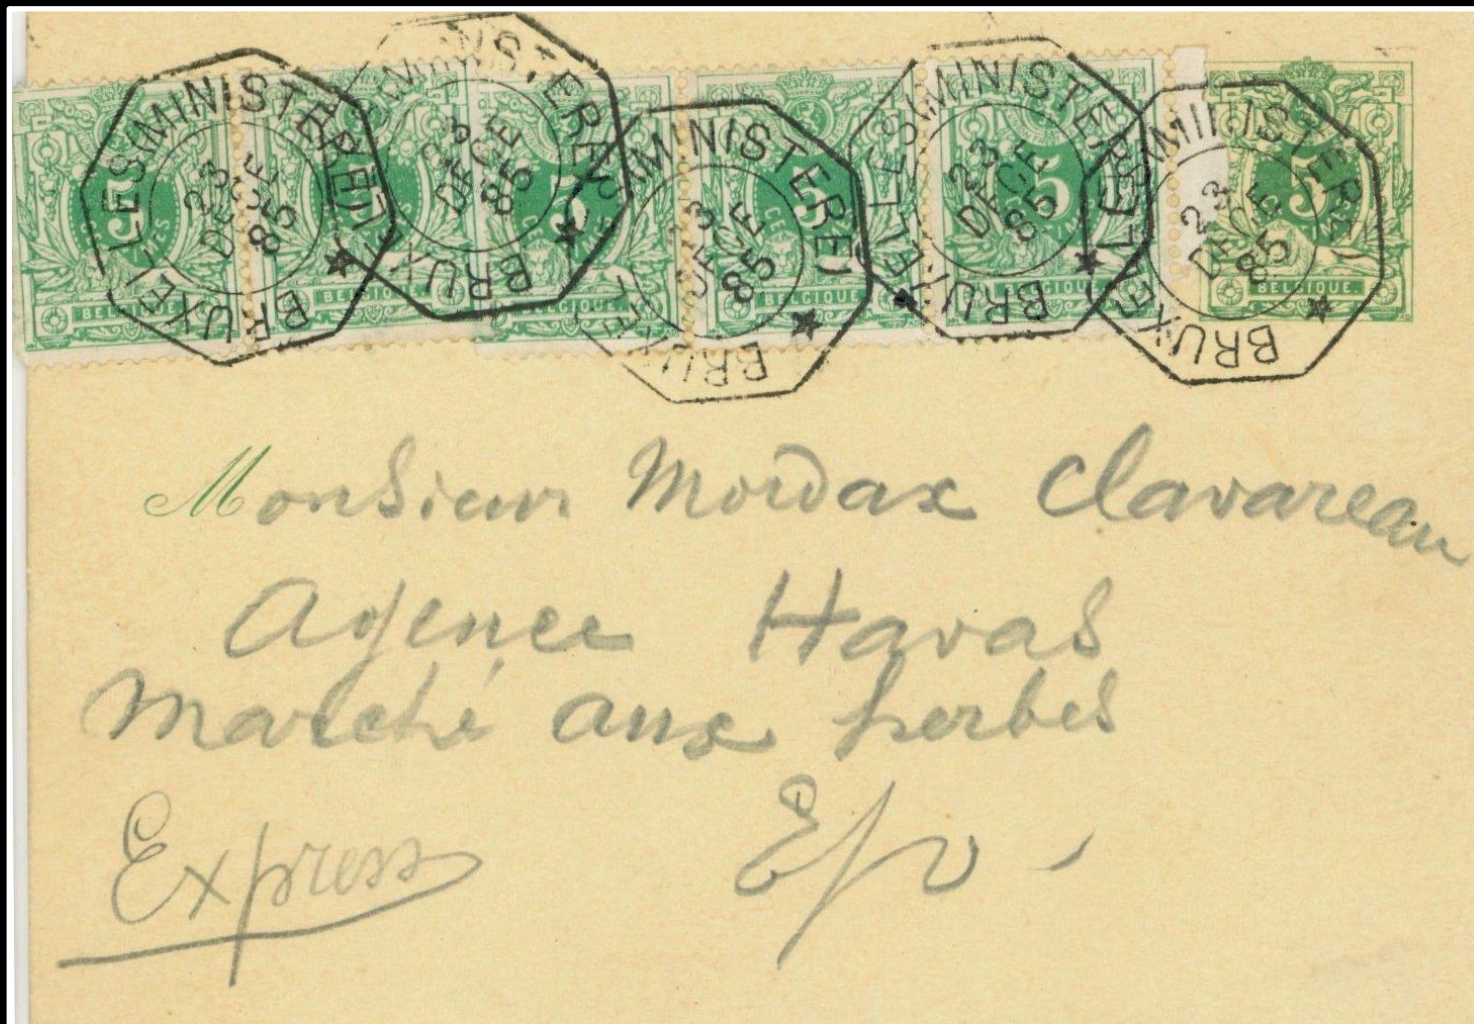 BRUXELLES (MINISTERE) 23 DECE 85
BRUXELLES (MINISTERE) 23 DECE 85
BRUXELLES (MINISTERE) 23 DECE 85
BRUXELLES (MINISTERE) 23 DECE 85
BRUXELLES (MINISTERE) 23 DECE 85
5 CENTIMES BELGIQUE.
5 CENTIMES BELGIQUE.
5 CENTIMES BELGIQUE.
5 CENTIMES BELGIQUE.
5 CENTIMES BELGIQUE.
5 BELGIQUE.
Monsieur Mordax Clavareau
Agence Havas
Marché aux herbes
Express